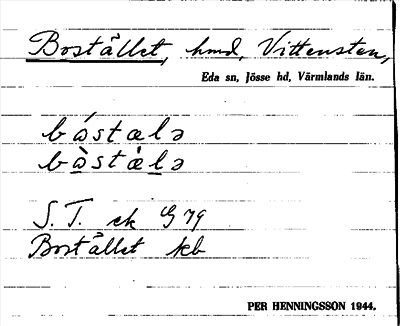 Bostället, hmd, Vittensten,
Eda sn, Jösse hd, Värmlands län.
bástælə
bàstæ̀lə
S. T. ek G 79
Bostället kb
PER HENNINGSSON 1944.